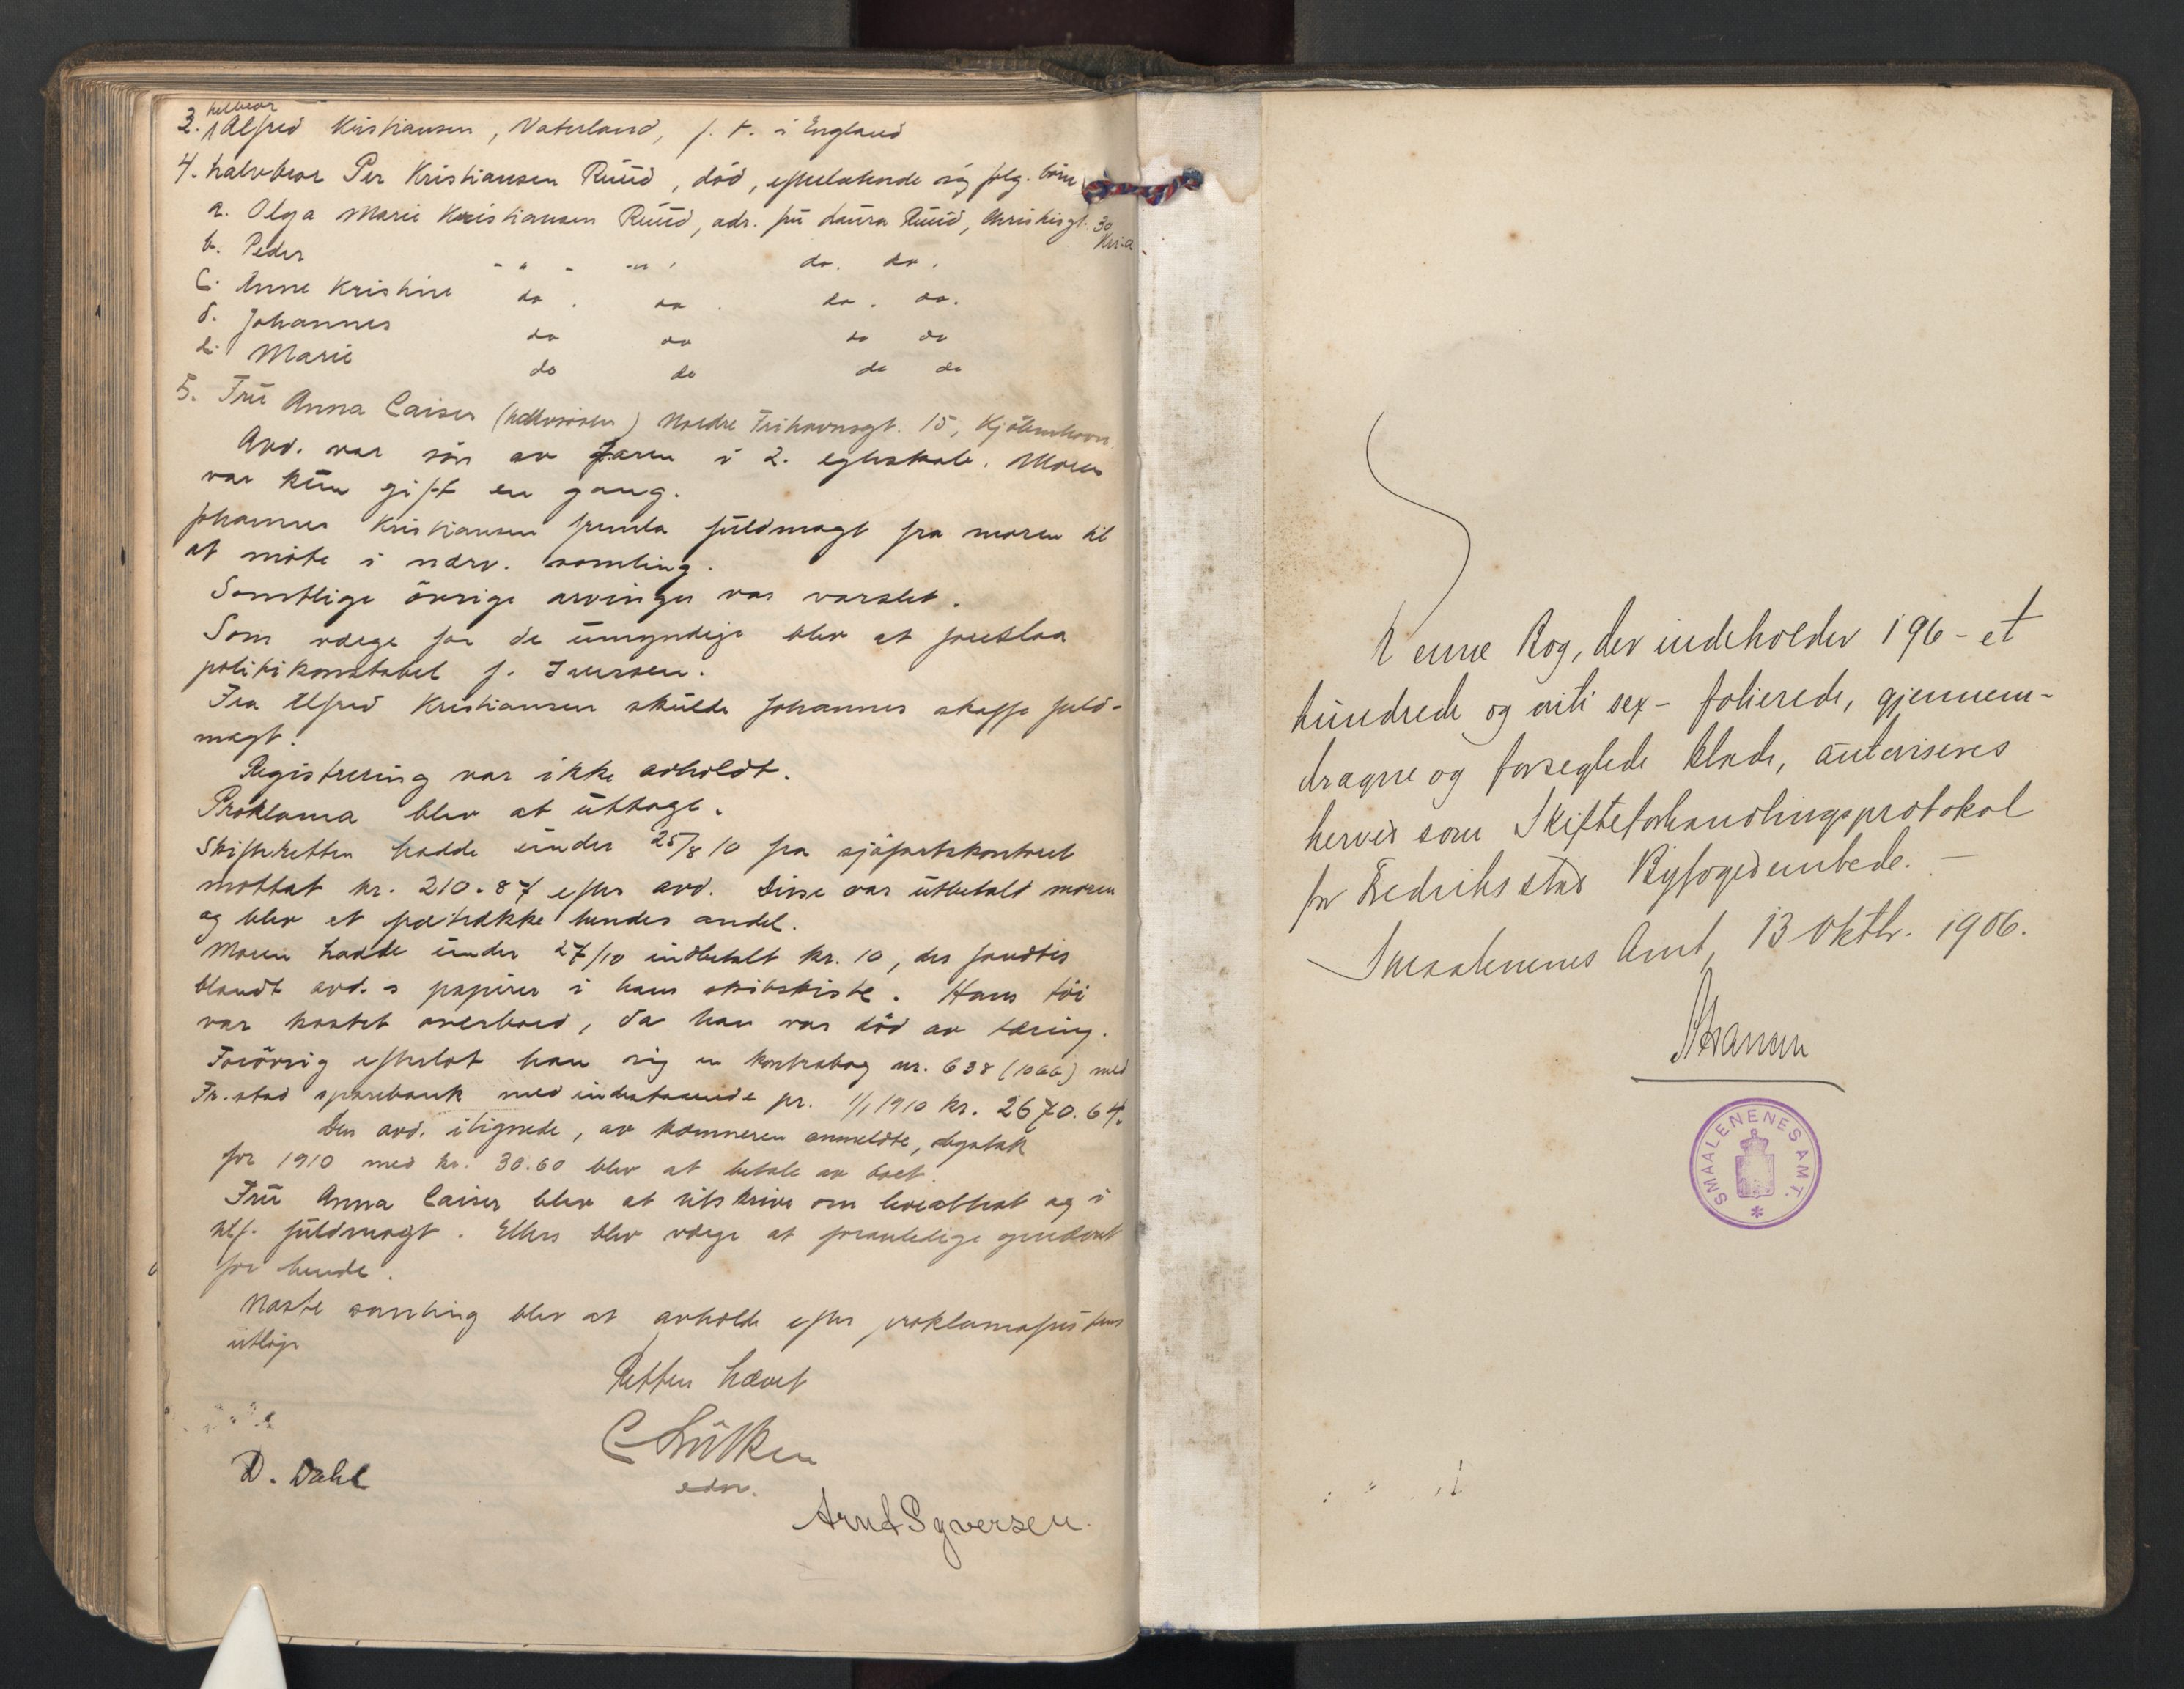 helbror
3. Alfred Kristiansen, Vaterland, f. t. i England
4. halvbror Per Kristiansen Ruud, död, efterlatende sig følg. börn
a. Olga Marie Kristiansen Ruud, adr. fru Laura Ruud, Christiesgt. 30
Kr.a.
b. Peder " " " " do. do.
c. Anne Kristine do. do. do. do.
d. Johannes do do do do
e. Marie do do do do
5. Fru Anna Caiser (helsöster) Nordre Frihavnsgt. 15, Kjöbenhavn
Avd. var sön av faren i 2. egteskab. Moren
var kun gift en gang.
Johannes Kristiansen fremla fuldmagt fra moren til
at möte i nærv. samling.
Samtlige övrige arvinger var varslet.
Som verge for de umyndige blev at foreslaa
politikonstabel J. Iversen.
Fra Alfred Kristiansen skulde Johannes skaffe fuld-
magt.
Registrering var ikke avholdt.
Proklama blev at uttage.
Skifteretten hadde under 25/8 10 fra sjöfartskontoret
mottat kr. 210.87 efter avd. Disse var utbetalt moren
og blev at fratrække hendes andel.
Moren hadde under 27/10 indbetalt kr. 10, der fandtes
blandt avd.s papirer i hans skibskiste. Hans töi
var kastet overbord, da han var död av tæring.
Forövrig efterlot han sig en kontrabog nr. 638 (1066) med
Fr.stad sparebank med indestaaende pr. 1/1 1910 kr. 2670.64.
Den avd. ilignede, av kæmneren anmeldte, byskat
for 1910 med kr. 30.60 blev at betale av boet.
Fru Anna Caiser blev at tilskrive om leveattest og i
tilf. fuldmagt. Ellers blev verge at foranledige opnævnt
for hende.
Næste samling blev at avholde efter proklamafristens
utlöp
Retten hævet
C Lütken
edsv.
D. Dahl
Arnt Syversen.
Denne Bog, der indeholder 196 - et
hundrede og niti sex - folierede, gjennem-
dragne og forseglede Blade, autoriseres
herved som Skifteforhandlingsprotokol
for Fredriksstad Byfogedembede. -
Smaalenenes Amt, 13 Oktbr. 1906.
SMAALENENES AMT.